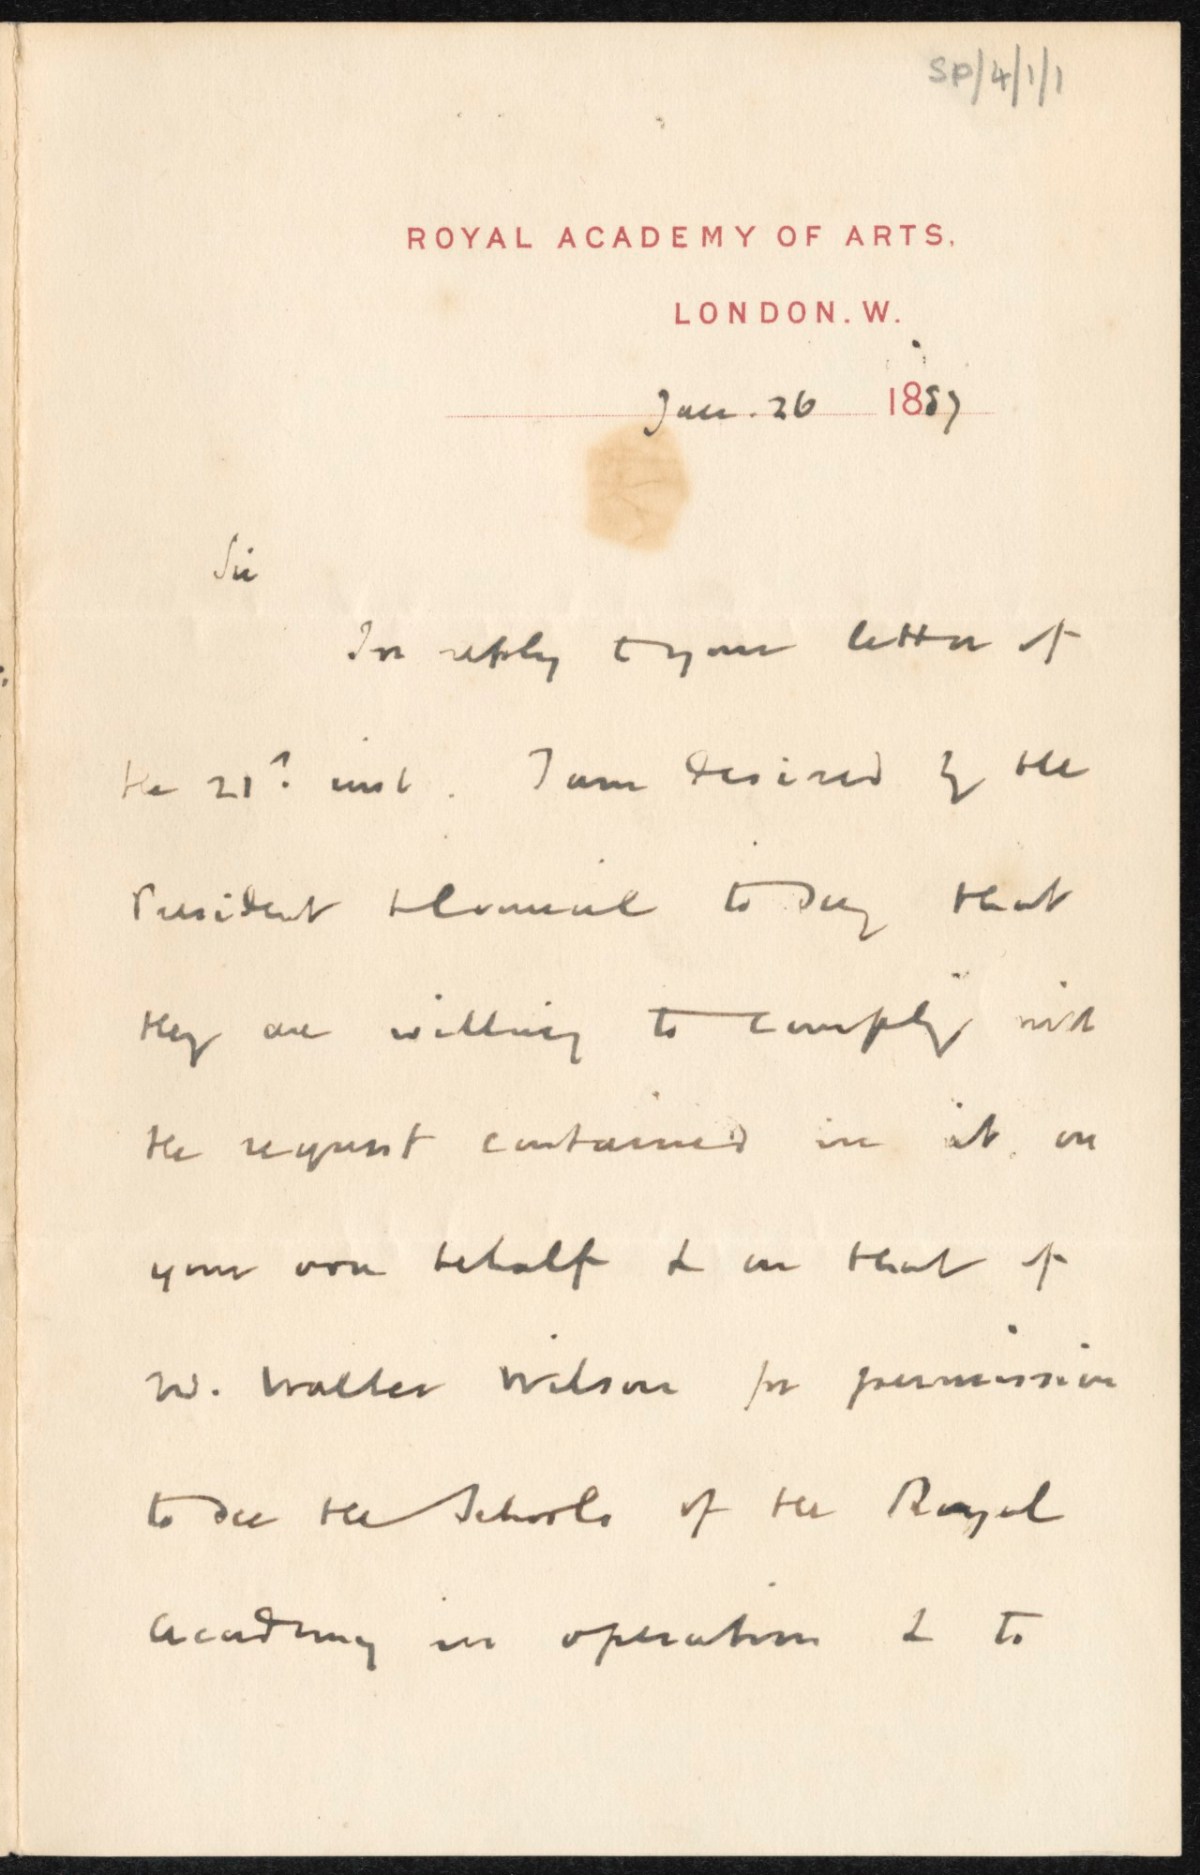 SP/4/1/1
ROYAL ACADEMY OF ARTS.
LONDON. W.
Jan. 26 1887
Sir
In reply to your letter of
the 21st inst. I am desired by the
President & Council to say that
they are willing to comply with
the request contained in it on
your own behalf & on that of
Walter Wilson for permission
to see the Schools of the Royal
Academy in operation & to